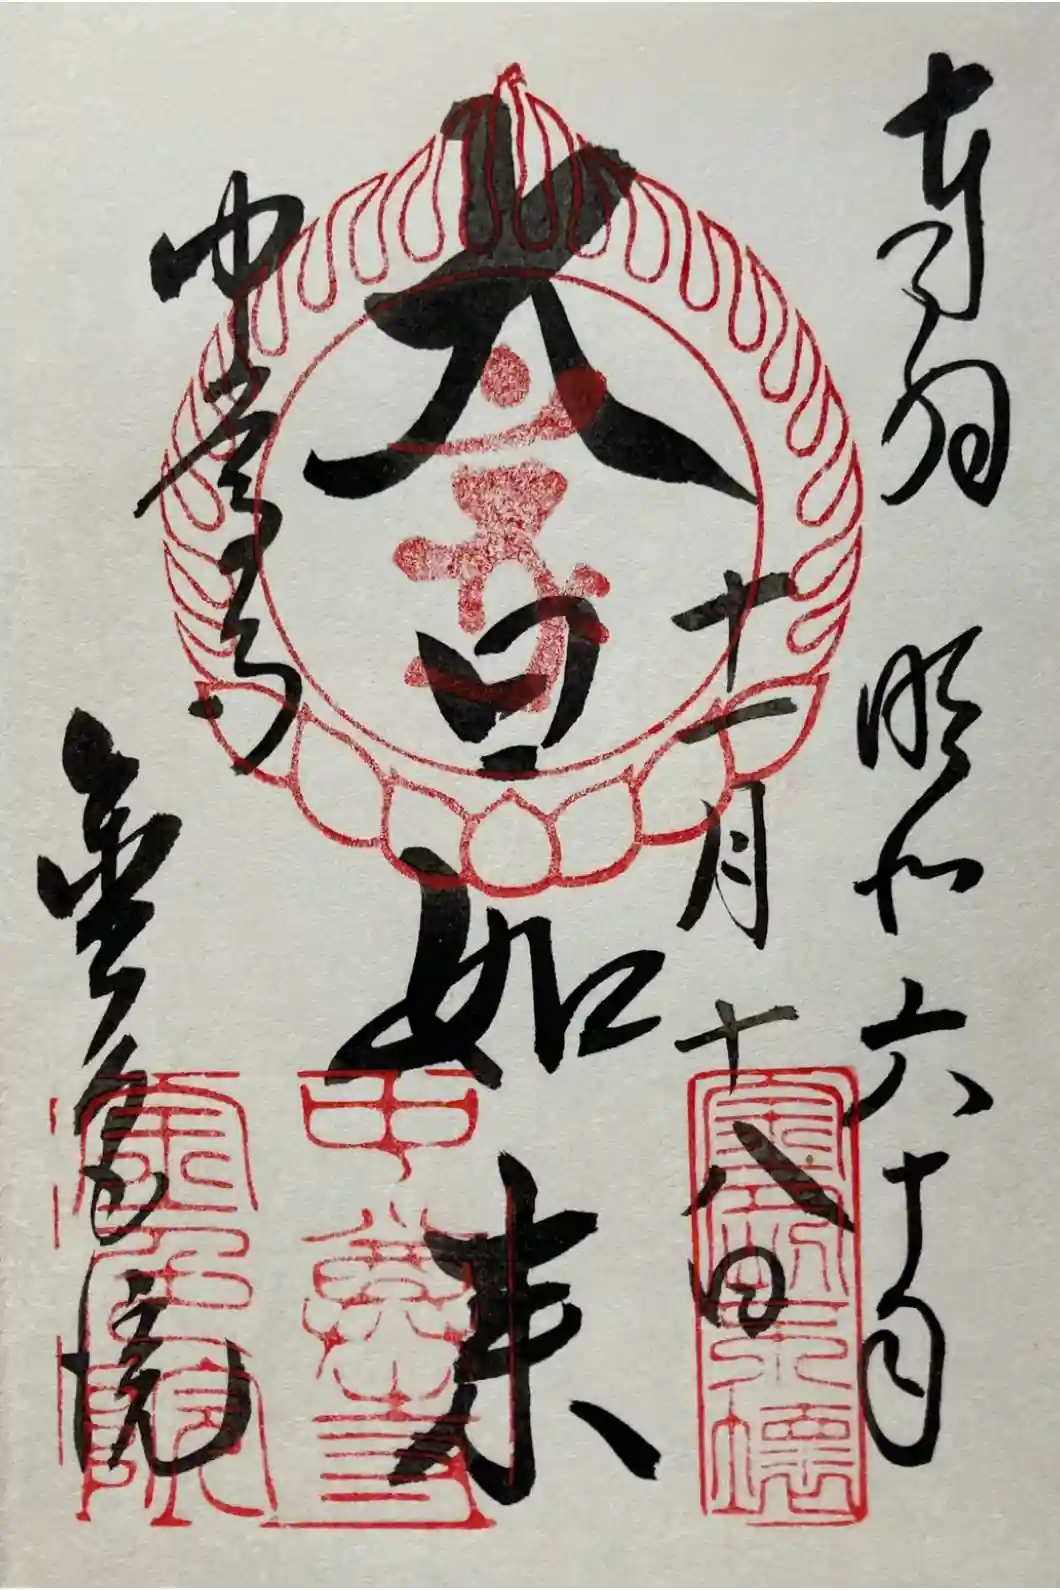 奉拝 昭和六十年
十一月十八日
大日如来
中尊寺
金色院
中尊寺
金色院